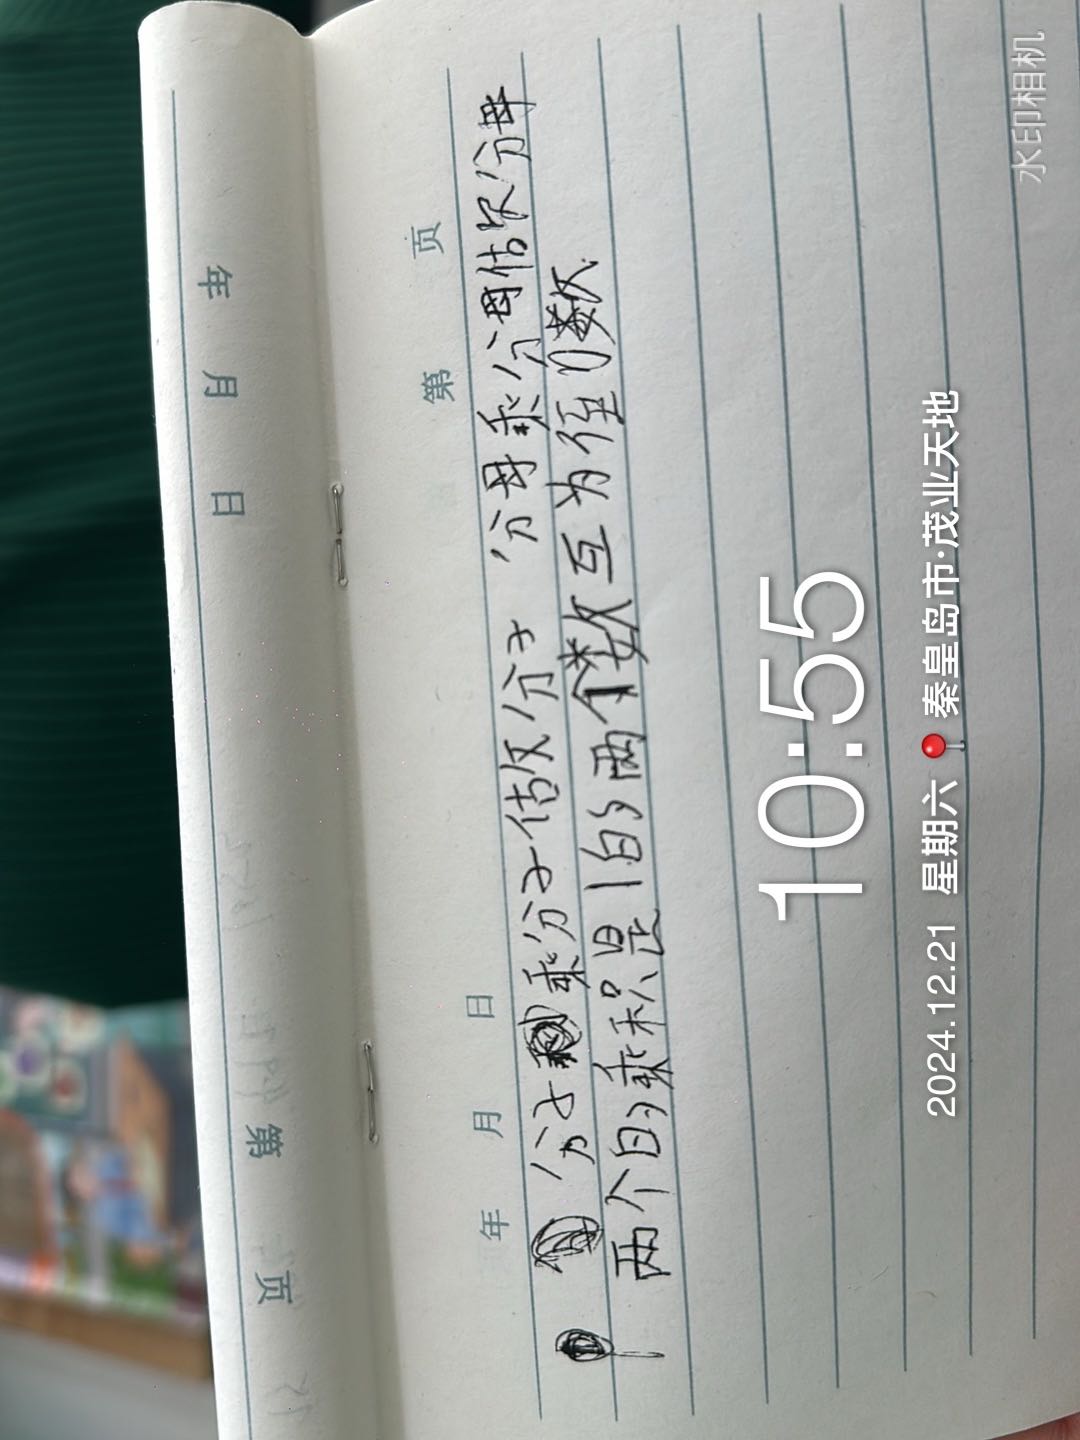 年 月 日 第 页
年 月 日 第 页
分子乘分子估做分子 分母乘分母估做分母
两个的乘积是1的两个数互为径0数.
10:55
2024.12.21 星期六 📍秦皇岛市·茂业天地
水印相机